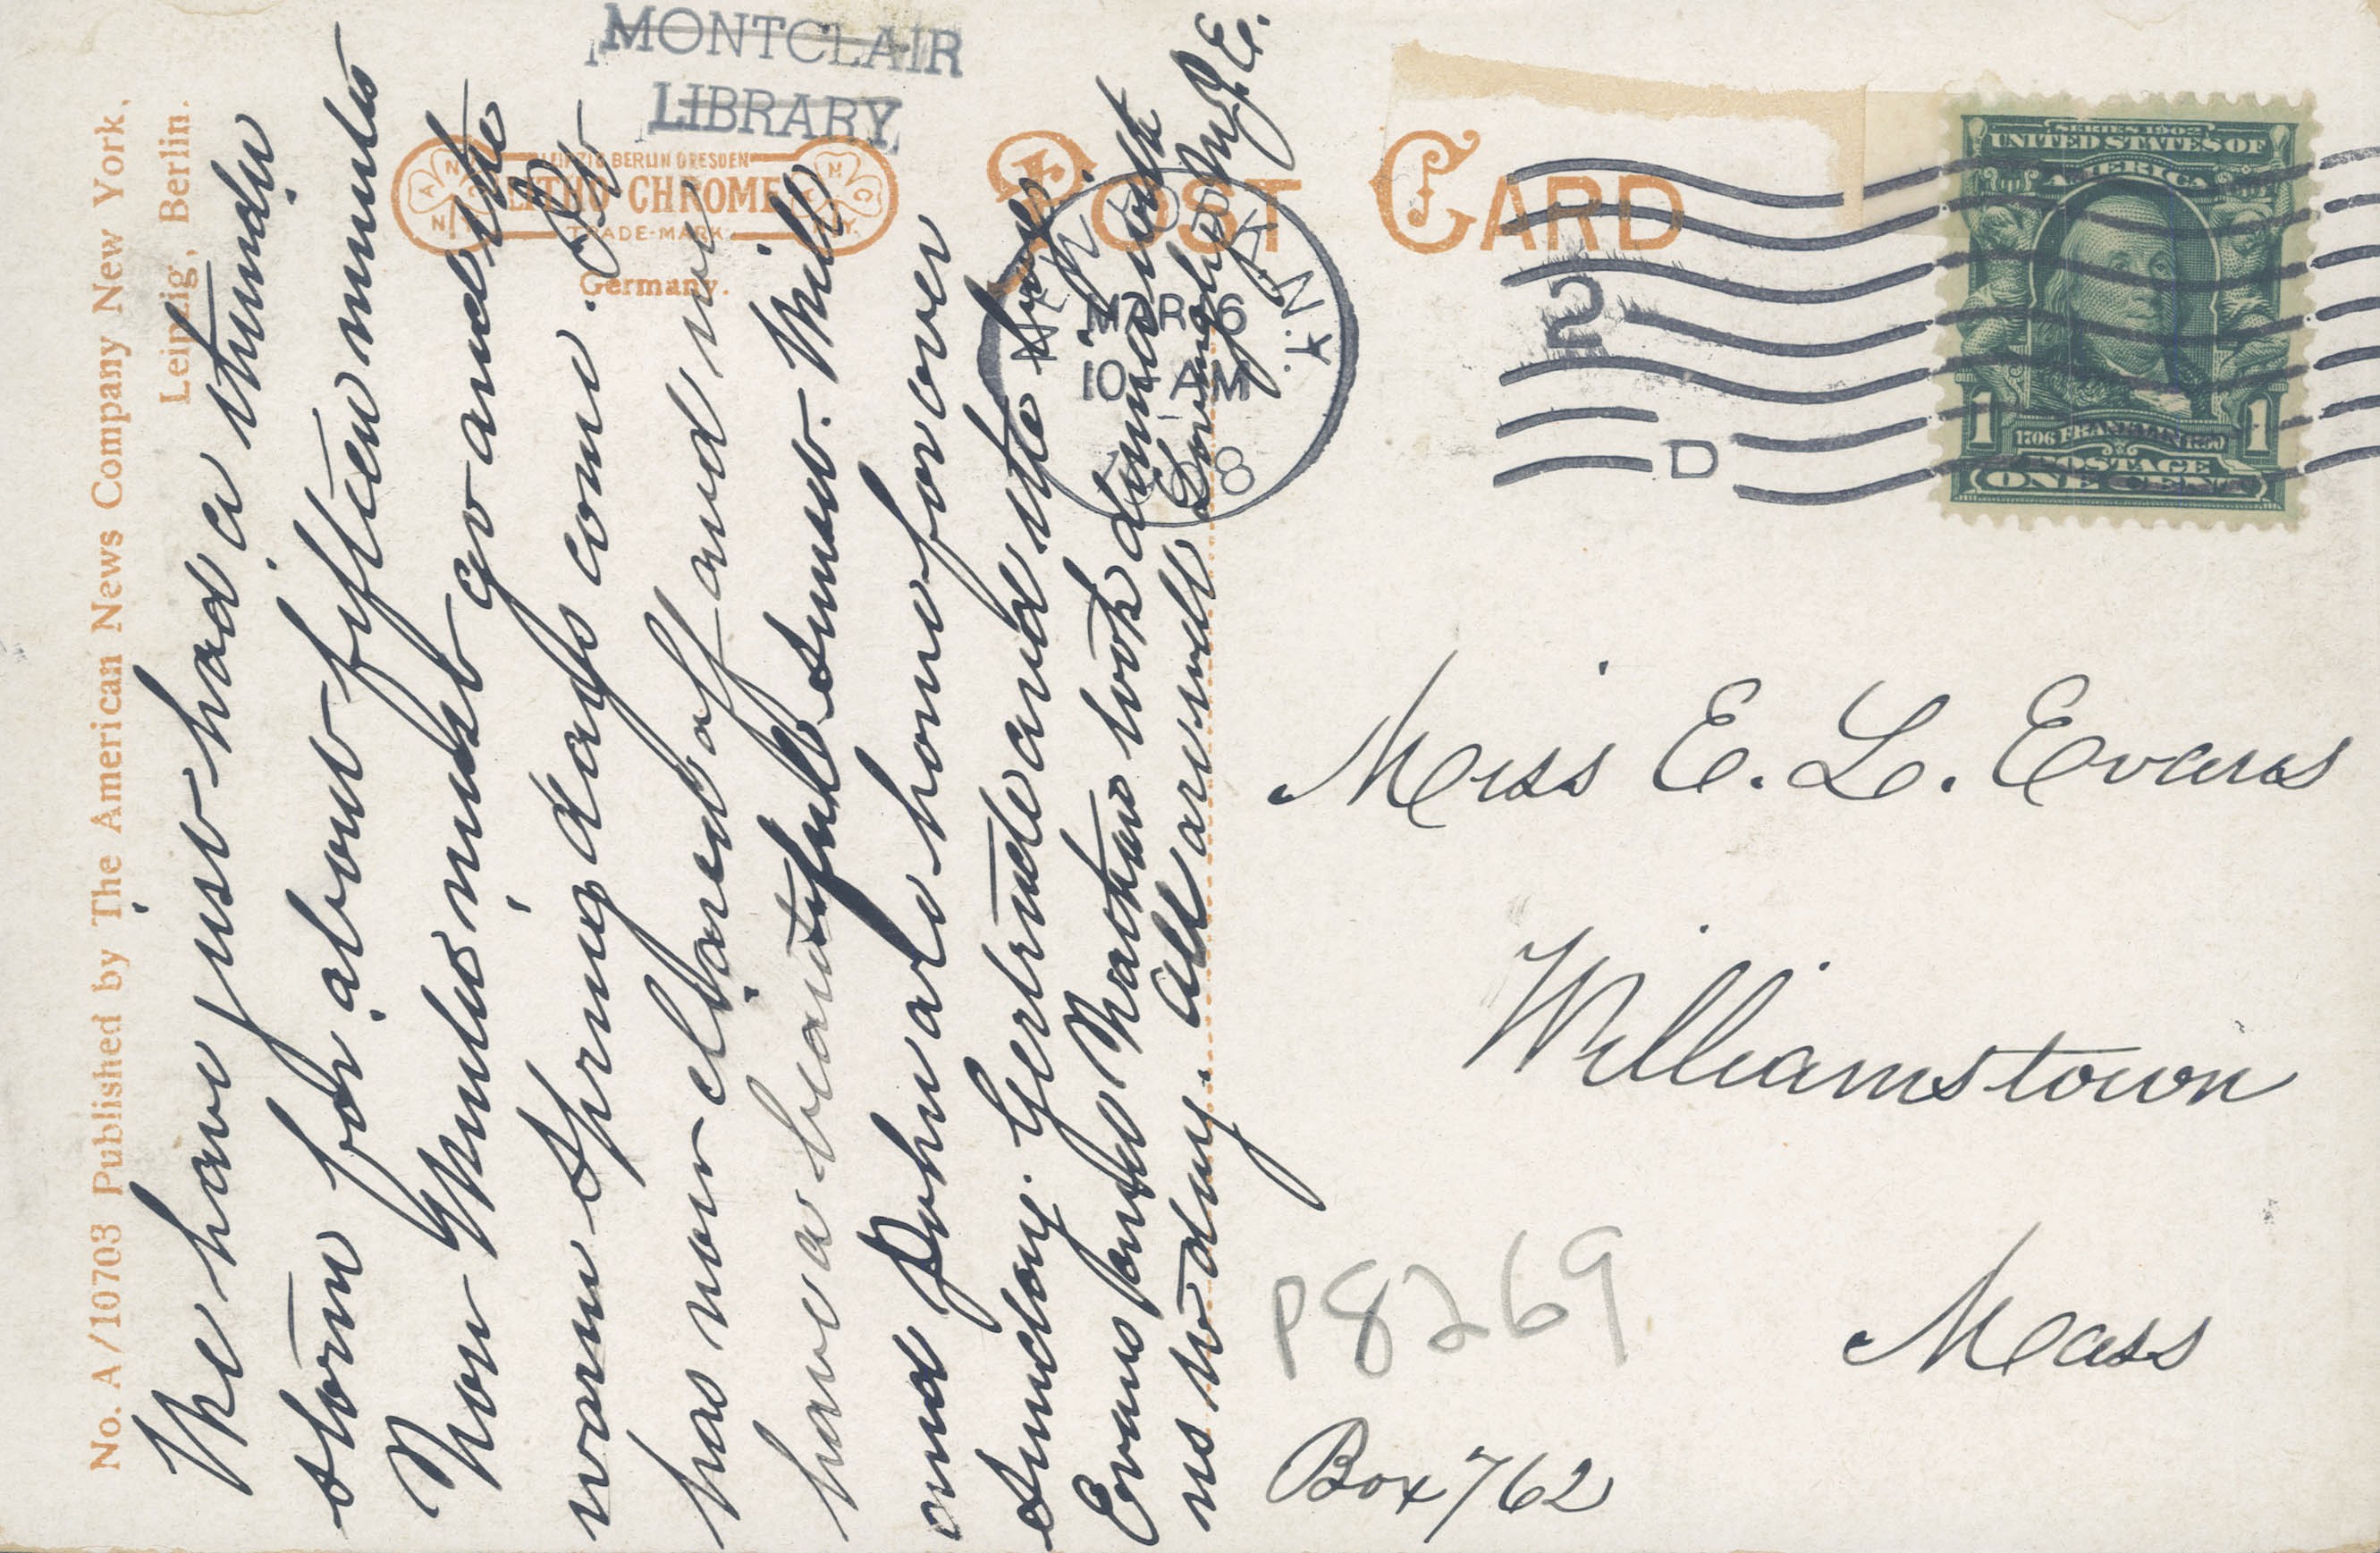 MONTCLAIR
LIBRARY
No. A/10703 Published by The American News Company New York,
Leipzig, Berlin.
LEIPZIG BERLIN DRESDEN
LITHO-CHROME
TRADE-MARK
Germany.
POST CARD
MAR 6
10 AM
N.Y.
2
D
SERIES 1902
UNITED STATES OF
AMERICA
1706 FRANKLIN 1790
POSTAGE
1 ONE CENT 1
We have just had a thunder
storm for about fifteen minutes
Now Winter must go and the
warm spring days come. It
has now cleared off and we
have a beautiful sunset. Will
and John are home for over
Sunday. Gertrude and the boys.
Evans and Nathan took dinner with
us today. All are well Lovingly M.J.E.
Miss E. L. Evans
Williamstown
Mass
Box 762
P8269